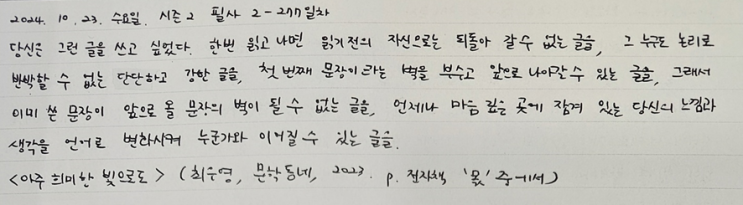 2024. 10. 23. 수요일. 시즌 2 필사 2-277일차
당신은 그런 글을 쓰고 싶었다. 한번 읽고 나면 읽기 전의 자신으로는 되돌아 갈 수 없는 글을, 그 누구도 논리로
반박할 수 없는 단단하고 강한 글을, 첫 번째 문장이라는 벽을 부수고 앞으로 나아갈 수 있는 글을, 그래서
이미 쓴 문장이 앞으로 올 문장의 벽이 될 수 없는 글을, 언제나 마음 깊은 곳에 잠겨 있는 당신의 느낌과
생각을 언어로 변화시켜 누군가와 이어질 수 있는 글을.
<아주 희미한 빛으로도> (최수영, 문학동네, 2023. p. 전자책 '몫' 중에서)